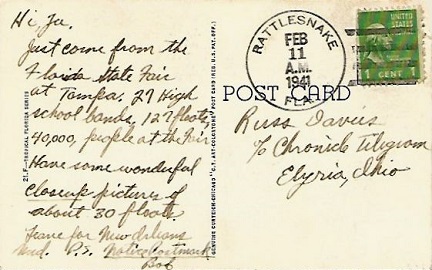 Hi, Ju.
Just come from the
Florida State Fair
at Tampa. 27 High
school bands, 127 floats,
40,000, people at the Fair
Have some wonderful
closeup pictures of
about 30 floats
Leave for New Orleans
Wed. P.S. Notice Postmark
Bob
21.F—TROPICAL FLORIDA SERIES
GENUINE CURTEICH-CHICAGO "C.T. ART-COLORTONE" POST CARD (REG. U.S. PAT. OFF.)
RATTLESNAKE
FEB
11
A.M.
1941
FLA.
UNITED STATES
1 CENT 1
POST CARD
Russ Davies
% Chronicle Telegram
Elyria, Ohio